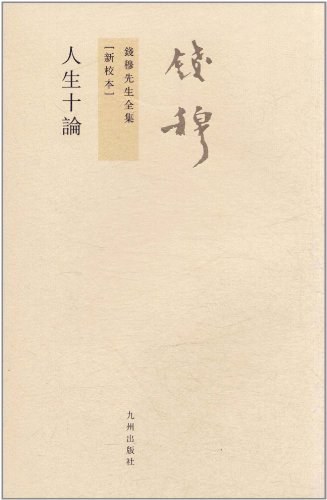 錢穆
錢穆先生全集
［新校本］
人生十論
九州出版社